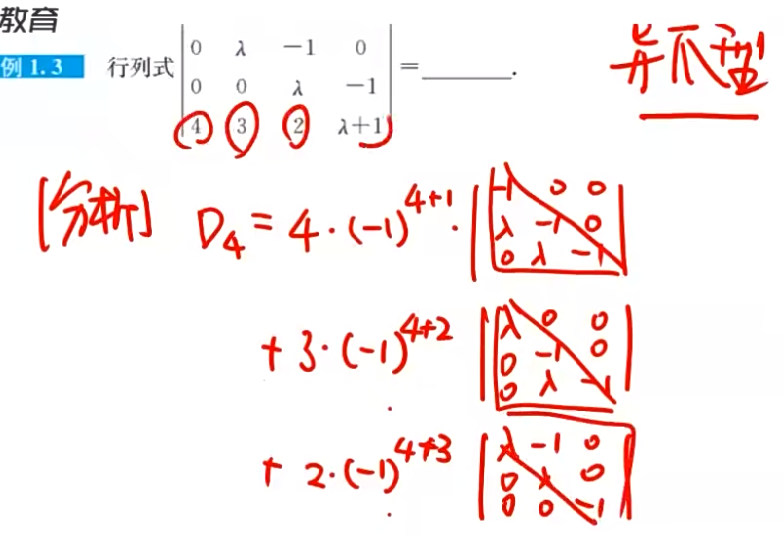 教育
异爪型
例 1.3 行列式 | 0 λ −1 0 | = ______.
0 0 λ −1
4 3 2 λ+1
[分析] D₄ = 4·(−1)^{4+1}· | −1 0 0 |
λ −1 0
0 λ −1
+ 3·(−1)^{4+2} | λ 0 0 |
0 −1 0
0 λ −1
+ 2·(−1)^{4+3} | λ −1 0 |
0 λ 0
0 0 −1